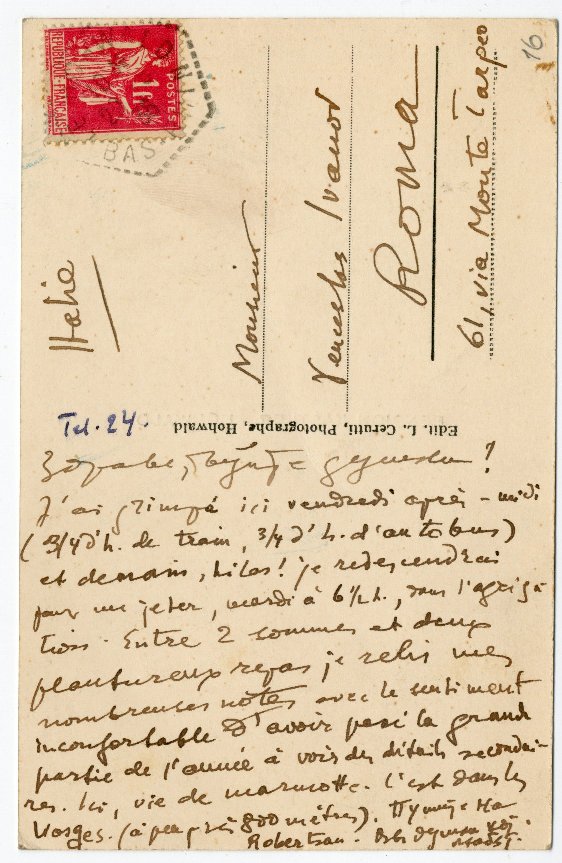 16
POSTES
1F
RÉPUBLIQUE FRANÇAISE
BAS
Monsieur
Venceslas Ivanov
Roma
61, via Monte Tarpeo
Italie
Edit. L. Cerutti, Photographe, Hohwald
Tel. 24.
J'ai grimpé ici vendredi après-midi
(3/4 d'h. de train, 3/4 d'h. d'autobus)
et demain, hélas! je redescendrai
pour me jeter, mardi à 6 1/2 h., dans l'agréga
tion. Entre 2 sommes et deux
plantureux repas je relis mes
nombreuses notes avec le sentiment
inconfortable d'avoir passé la grande
partie de l'année à voir des détails secondai-
res. Ici, vie de marmotte. C'est dans les
Vosges. (à peu près 800 mètres). Пишите на
Robertsau.